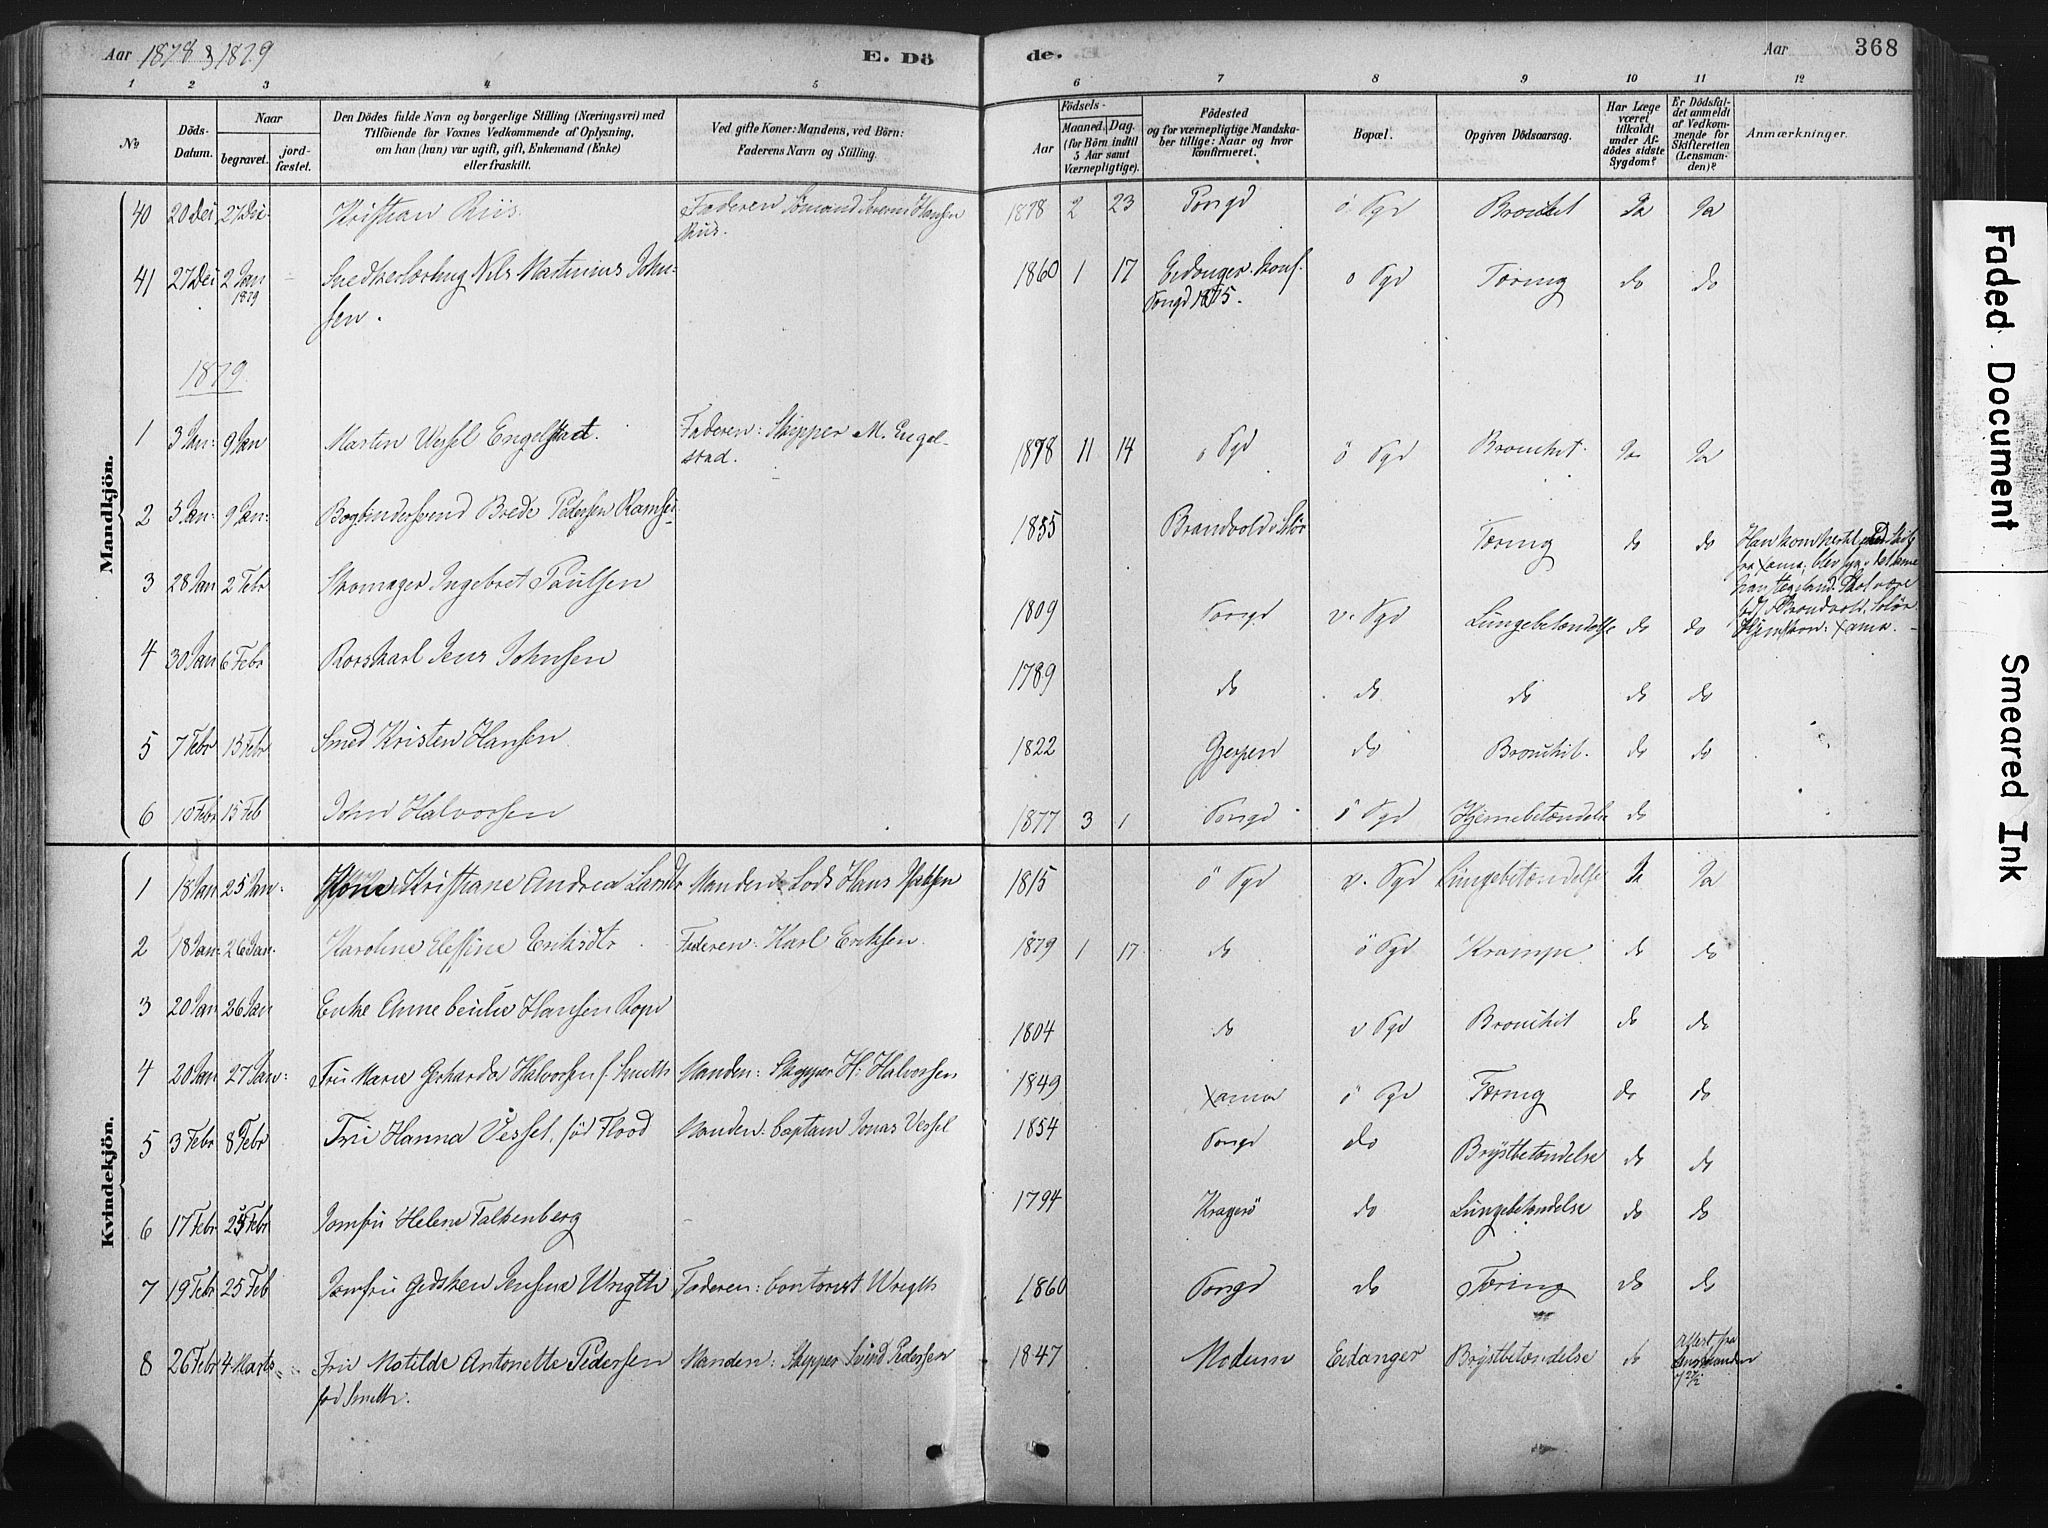 Aar 1878 & 1879
E. Dö
de.
Aar
368
1 2 3 4 5 6 7 8 9 10 11 12
No
Döds-Datum.
Naar
begravet.
jord-fæstet.
Den Dödes fulde Navn og borgerlige Stilling (Næringsvei) med
Tilföiende for Voxnes Vedkommende af Oplysning,
om han (hun) var ugift, gift, Enkemand (Enke)
eller fraskilt.
Ved gifte Koner: Mandens, ved Börn:
Faderens Navn og Stilling.
Födsels-
Aar
Maaned. Dag.
(for Börn indtil
5 Aar samt
Værnepligtige).
Födested
og for værnepligtige Mandska-
ber tillige: Naar og hvor
konfirmeret.
Bopæl.
Opgiven Dödsaarsag.
Har Læge
været
tilkaldt
under Af-
dödes sidste
Sygdom?
Er Dödsfal-
det anmeldt
af Vedkom-
mende for
Skifteretten
(Lensman-
den)?
Anmærkninger.
Mandkjön.
40 20 Dei 27 Dei Kristian Riis. Faderen Sömand Severin Hansen 1878 2 23 Porsgd ö. Pgd Bronchit Ja Ja
Riis.
41 27 Dei 2 Jan Snedkerlærling Nils Martinius John- 1860 1 17 Eidanger. Konf. ö Pgd Tæring do do
1879 sen. Porsgd 1875.
1879.
1 3 Jan: 9 Jan Martin Vessel Engelstad. Faderen: Skipper M. Engel- 1878 11 14 ö Pgd ö Pgd Bronchit. Ja Ja
stad.
2 5 Jan: 9 Jan: Bogbindersvend Brede Pedersen 1855 Brandvold i Solör Tæring do do
fra Xania, blev syg
Brandvold, Solör
Xania.
3 28 Jan 2 Febr Skomager Ingebret Paulsen 1809 Porsgd v. Pgd Lungebetændelse do do
4 30 Jan 6 Febr Borskarl Jens Johnsen 1789 do do do do do
5 7 Febr 13 Febr Smed Kristen Hansen 1822 Gjerpen do Bronchit. do do
6 10 Febr 15 Feb John Halvorsen 1877 3 1 Porsgd ö Pgd Hjernebetændelse do
Kvindekjön.
1 18 Jan 25 Jan: Kone Kristiane Andrea Larsdtr Manden: Lods Hans 1815 ö Pgd v. Pgd Lungebetændelse Ja Ja
2 18 Jan: 26 Jan. Karoline Eriksdtr Faderen: Karl Eriksen. 1879 1 17 do ö Pgd Krampe do do
3 20 Jan 26 Jan Enke Anne Cecilie Hansen 1804 do v Pgd Bronchit do do
4 20 Jan 27 Jan: Fru Marie Gerharda Halvorsen f. Smith Manden: Skipper H. Halvorsen 1849 Xania ö Pgd Tæring do do
5 3 Febr 8 Febr Fru Hanna Vessel, föd Flood Manden: Captain Jonas Vessel 1854 Porsgd do Brystbetændelse do do
6 17 Febr 25 Febr Jomfru Helene Falkenberg 1794 Kragerö do Lungebetændelse do do
7 19 Febr 25 Feb Jomfru Gidsken Jensine Wrigth Faderen: Contorist Wrigth 1860 Porsgd do Tæring do do
8 26 Febr 4 Marts Fru Matilde Antonette Pedersen Manden: Skipper Svend Pedersen 1847 Modum Eidanger Brystbetændelse do Attest fra
född Smith. Lensmanden
Faded Document
Smeared Ink